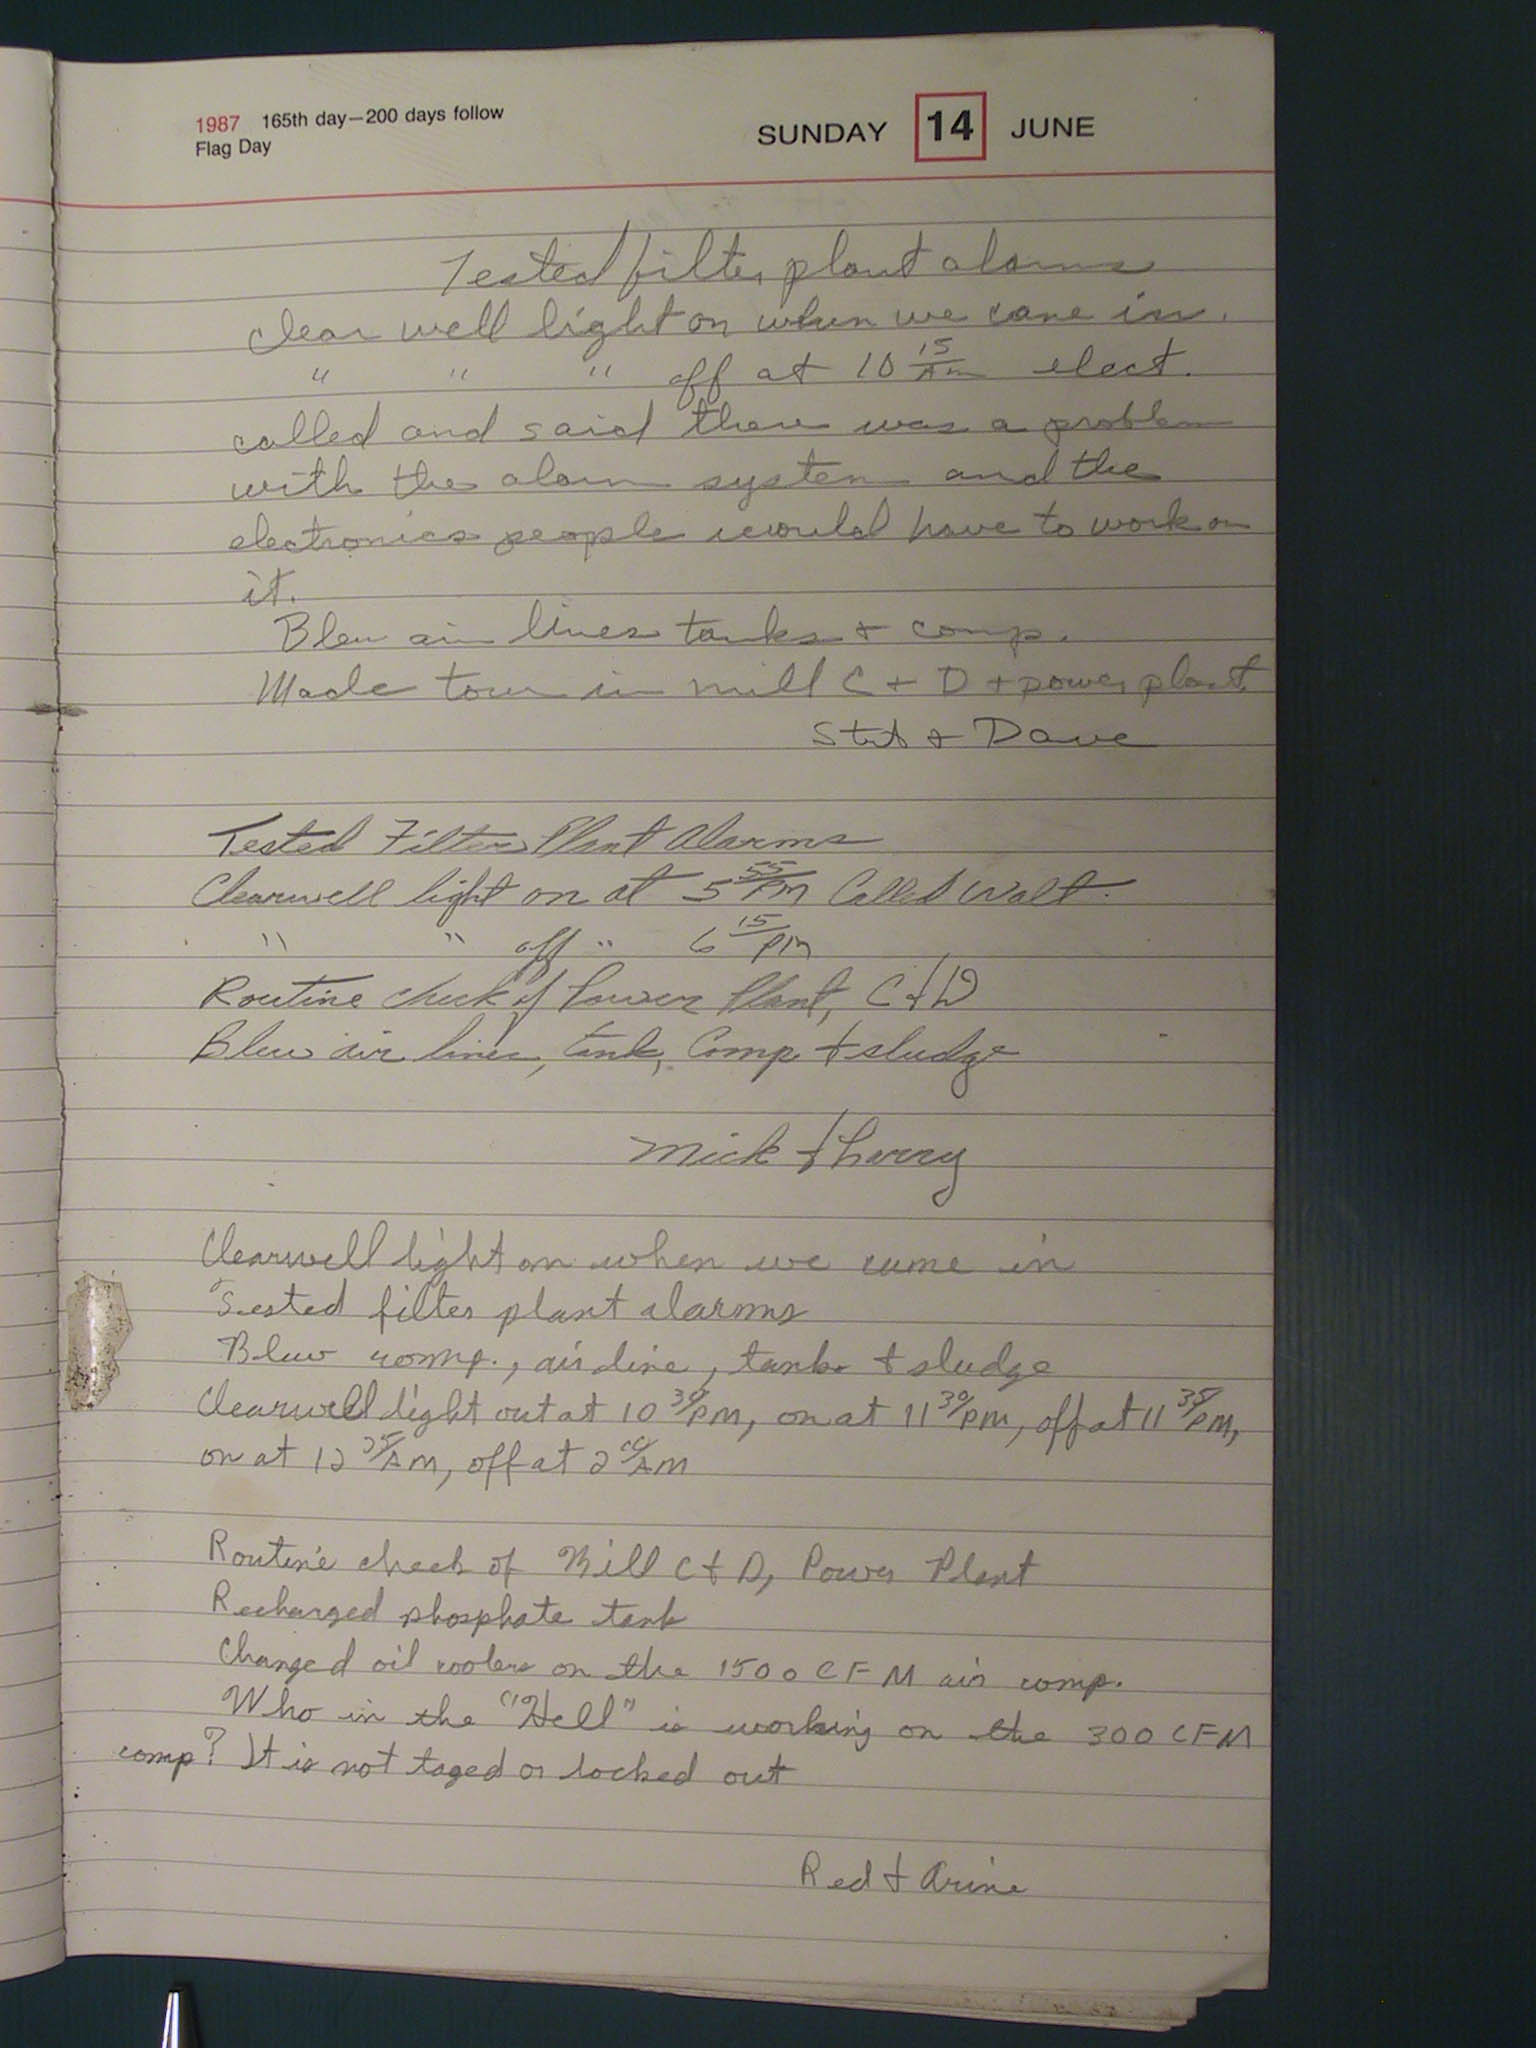 1987 165th day—200 days follow
Flag Day
SUNDAY 14 JUNE
Tested filter plant alarms
clear well light on when we came in.
" " " off at 10 15 AM elect.
called and said there was a problem
with the alarm system and the
electronics people would have to work on
it.
Blew air lines tanks + comp.
Made tour in mill C + D + power plant
+ Dave
Tested Filter Plant Alarms
Clearwell light on at 5 55 PM Called Walt.
" " off " 6 15 PM
Routine check of Power Plant, C + D
Blew air lines, tank, Comp + sludge
Mick + Larry
Clearwell light on when we came in
Tested filter plant alarms
Blew comp., air line, tank + sludge
Clearwell light out at 10 30 PM, on at 11 30 PM, off at 11 35 PM,
on at 12 25 AM, off at 2 00 AM
Routine check of Mill C + D, Power Plant
Recharged phosphate tank
Changed oil coolers on the 1500 CFM air comp.
Who in the "Hell" is working on the 300 CFM
comp? It is not taged or locked out
Red + Arine